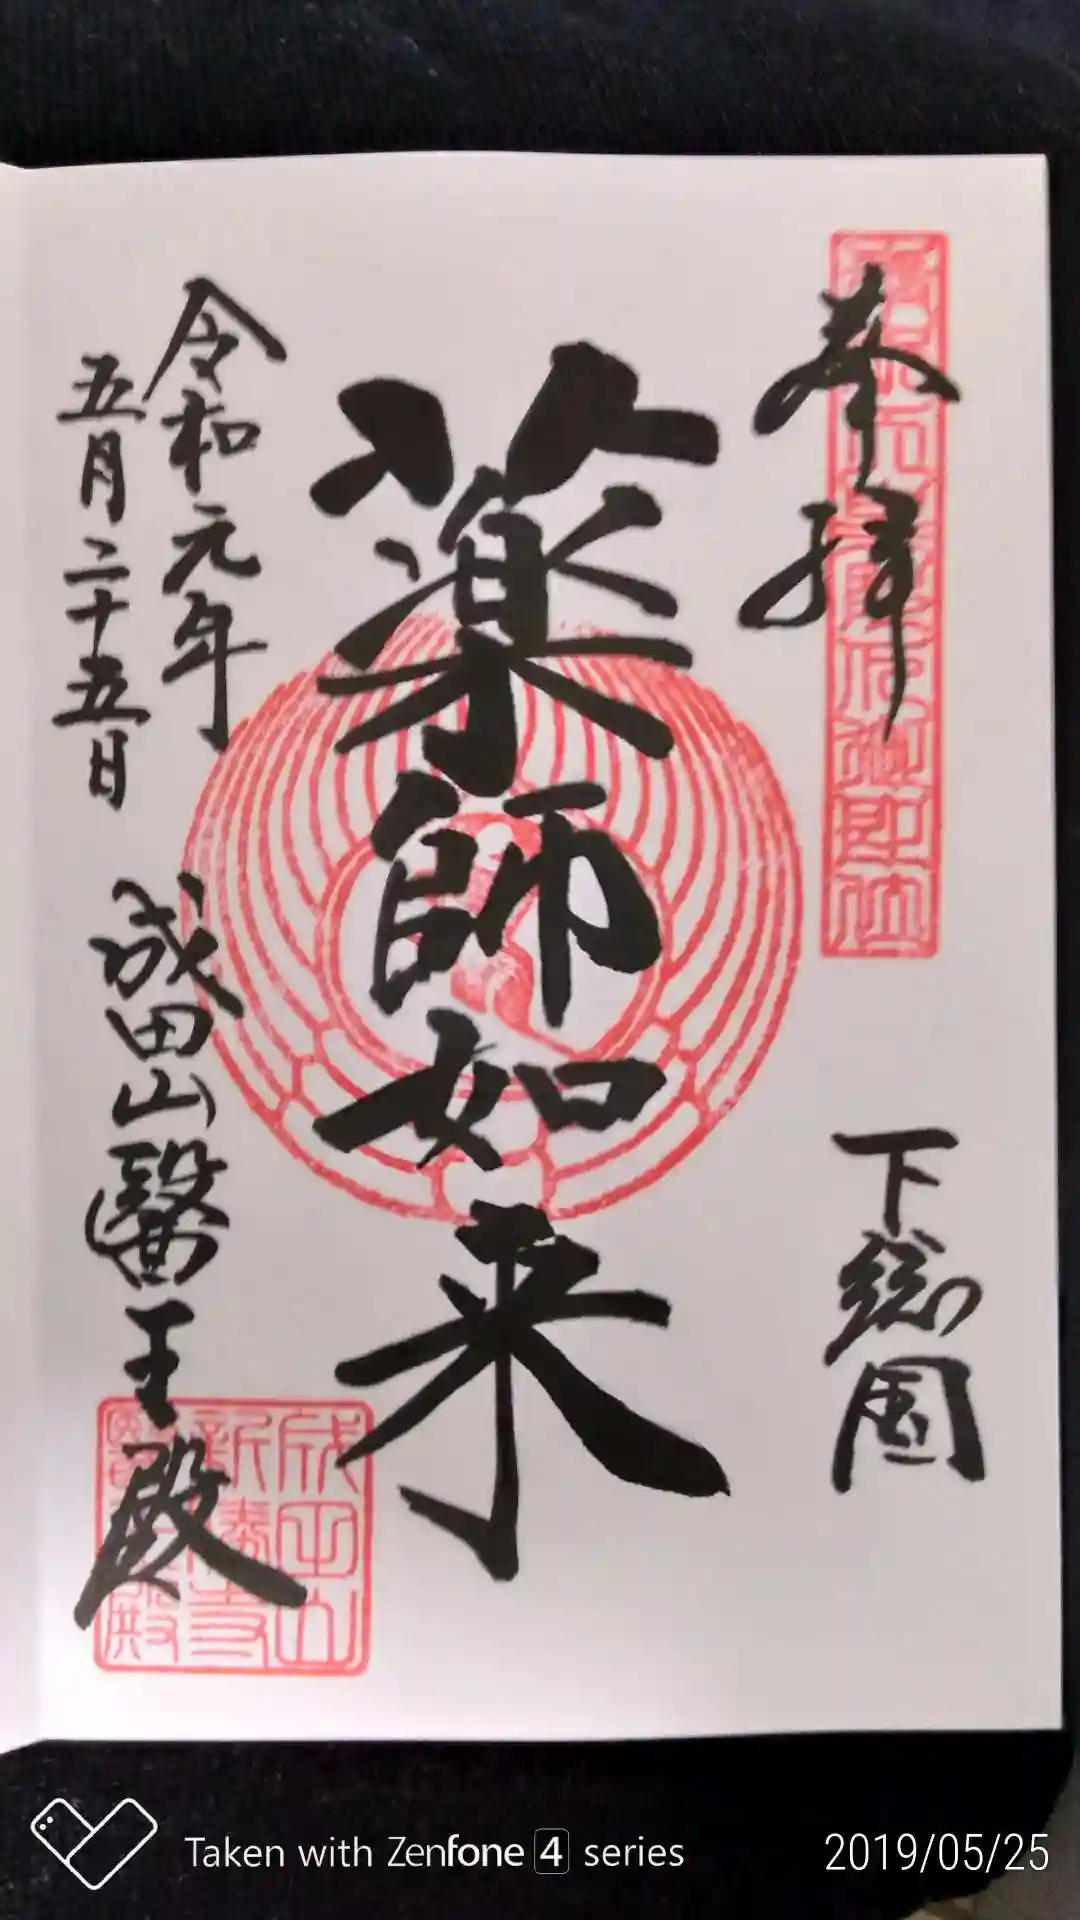 奉拝
下総国
薬師如来
令和元年
五月二十五日
成田山醫王殿
成田山
新勝寺
Taken with Zenfone 4 series
2019/05/25